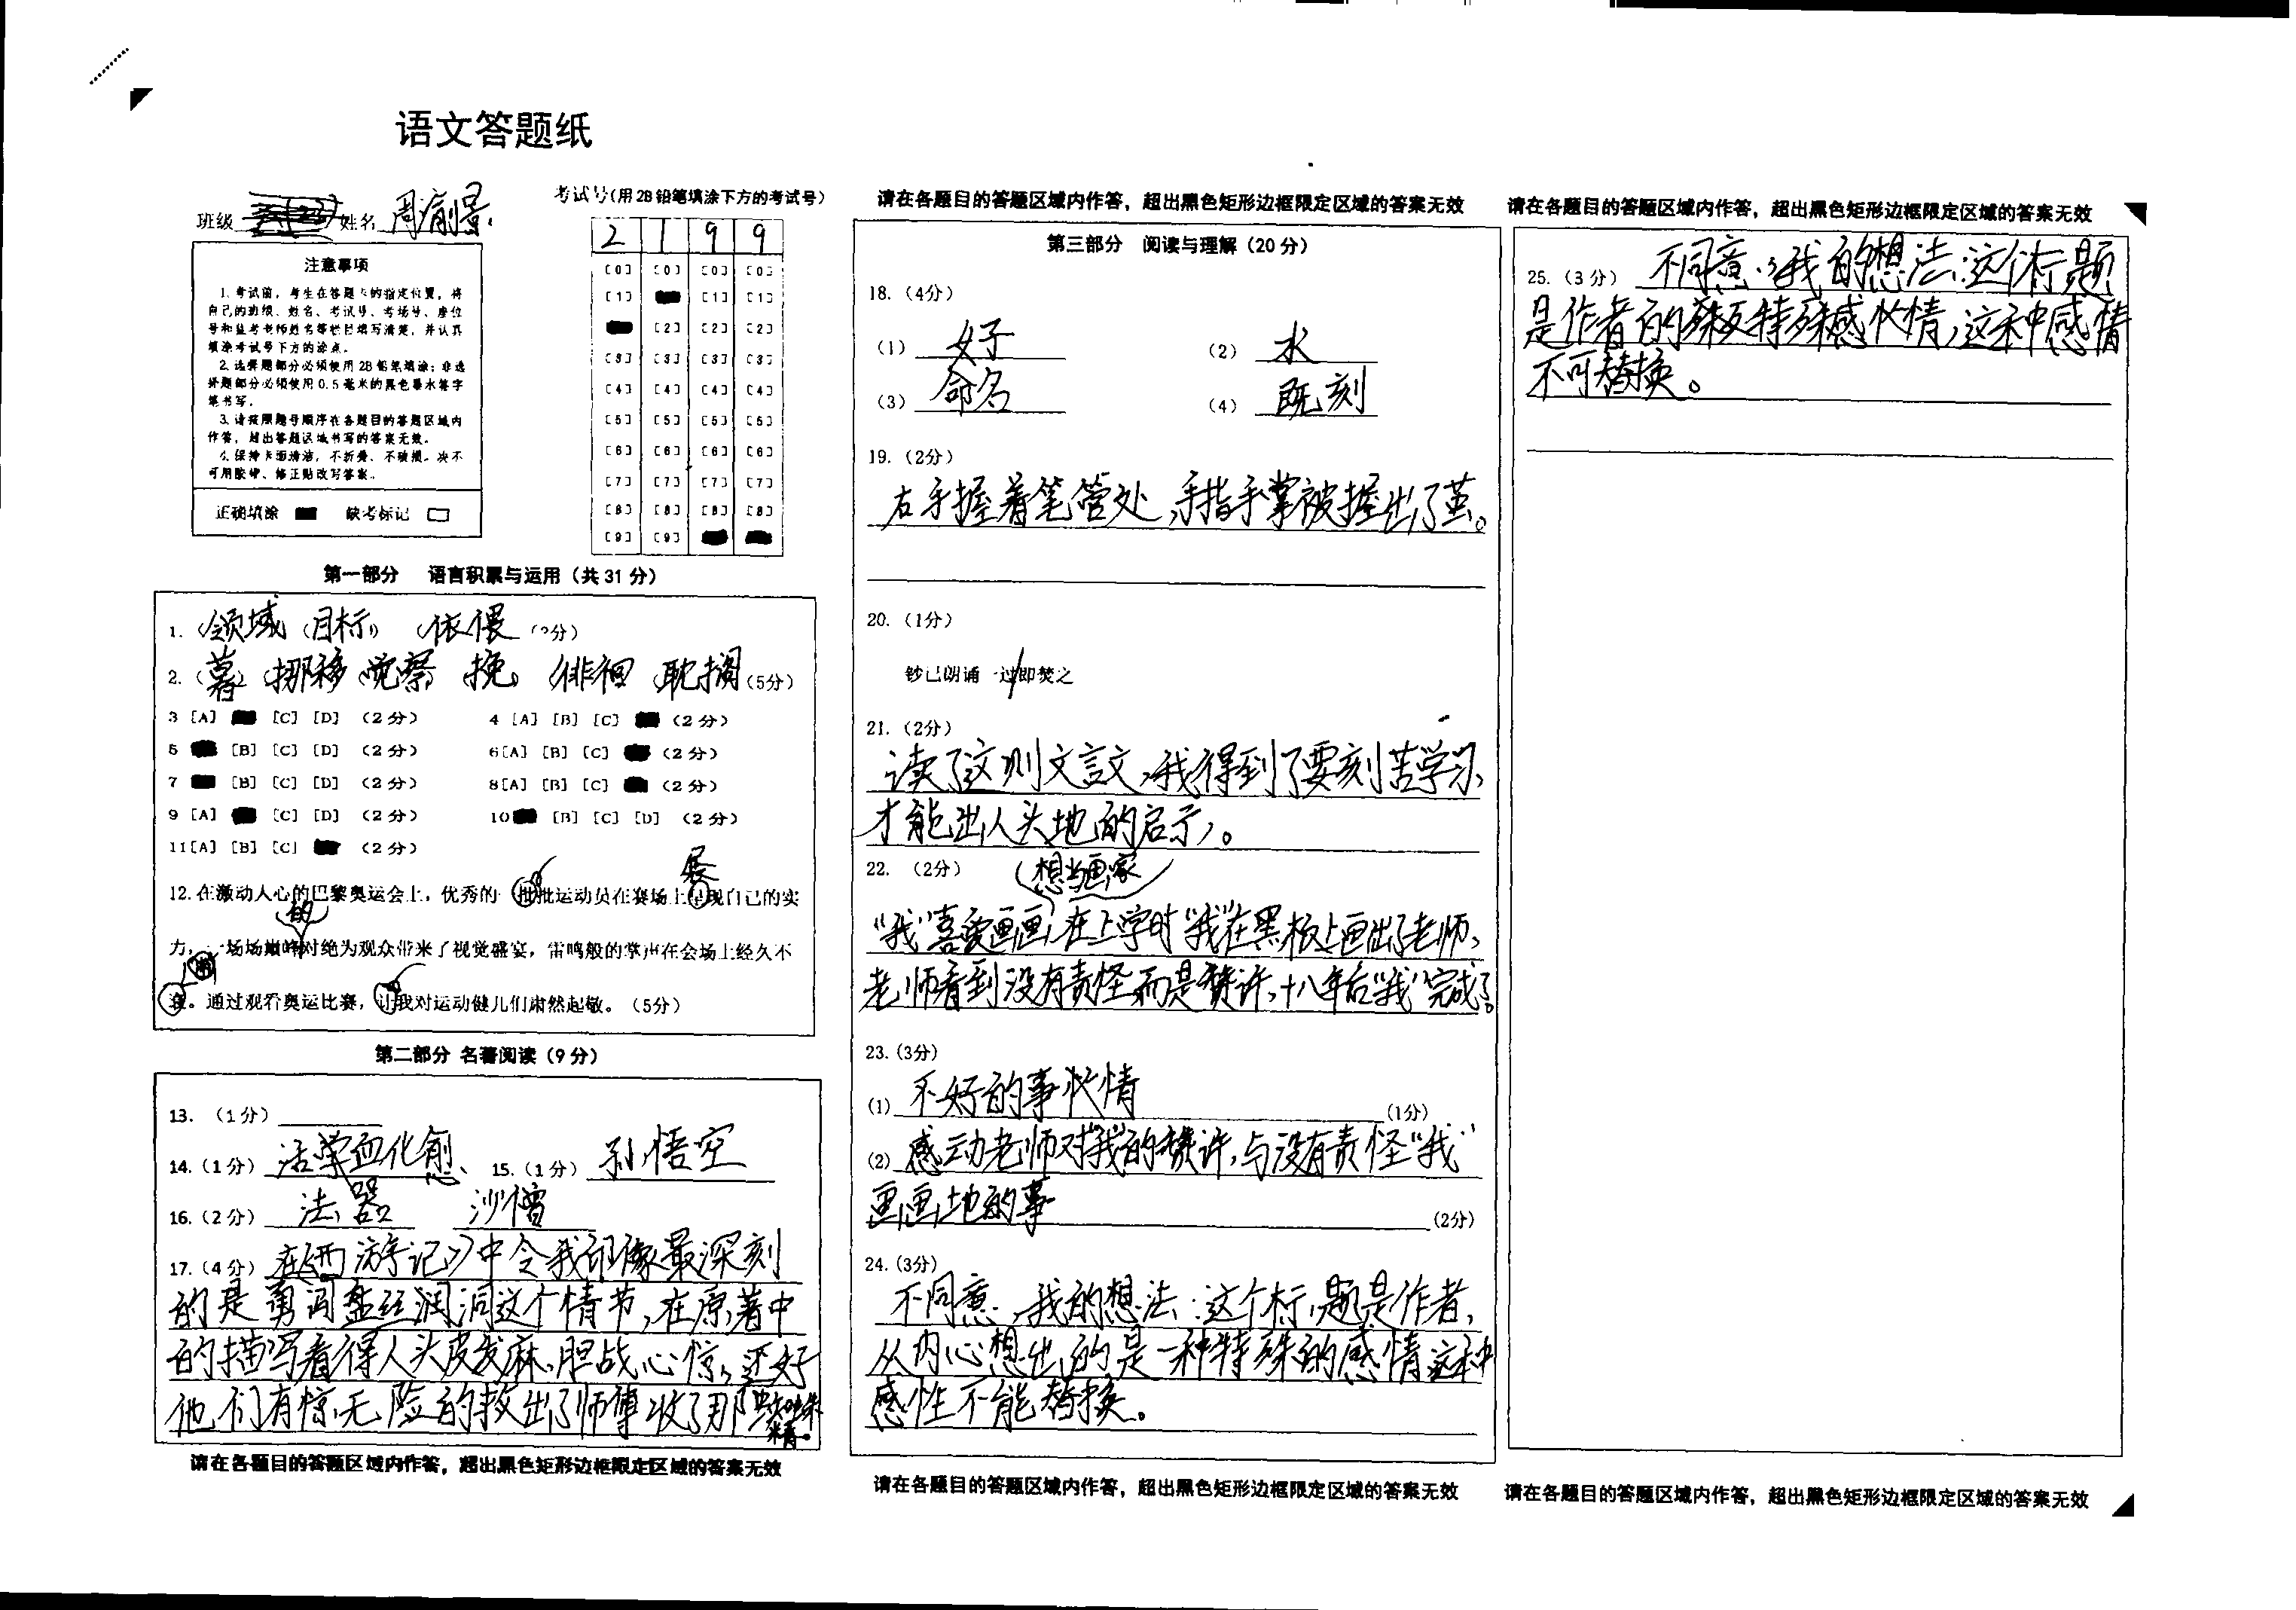 语文答题纸
班级 姓名 周
考试号(用2B铅笔填涂下方的考试号)
2 1 9 9
注意事项
1. 考试前，考生在答题卡的指定位置，将
自己的班级、姓名、考试号、考场号、座位
号和监考老师姓名等栏目填写清楚，并认真
填涂考试号下方的涂点。
2. 选择题部分必须使用2B铅笔填涂；非选
择题部分必须使用0.5毫米的黑色墨水签字
笔书写。
3. 请按照题号顺序在各题目的答题区域内
作答，超出答题区域书写的答案无效。
4. 保持卡面清洁，不折叠、不破损。决不
可用胶带、修正贴改写答案。
正确填涂 缺考标记
[0] [0] [0] [0]
[1] [1] [1]
[2] [2] [2]
[3] [3] [3] [3]
[4] [4] [4] [4]
[5] [5] [5] [5]
[6] [6] [6] [6]
[7] [7] [7] [7]
[8] [8] [8] [8]
[9] [9]
第一部分 语言积累与运用（共31分）
1. (领域) (目标) (依偎 (2分)
2. (暮) (挪移 觉察 挽) (徘徊 耽搁 (5分)
3 [A] [C] [D] (2分) 4 [A] [B] [C] (2分)
5 [B] [C] [D] (2分) 6[A] [B] [C] (2分)
7 [B] [C] [D] (2分) 8[A] [B] [C] (2分)
9 [A] [C] [D] (2分) 10 [B] [C] [D] (2分)
11[A] [B] [C] (2分)
展
12.在激动人心的巴黎奥运会上，优秀的一批批运动员在赛场上呈现自己的实
的
力，一场场巅峰对绝为观众带来了视觉盛宴，雷鸣般的掌声在会场上经久不
衰。通过观看奥运比赛，让我对运动健儿们肃然起敬。（5分）
第二部分 名著阅读（9分）
13.（1分）
14.（1分） 活学血化 15.（1分） 孙悟空
16.（2分） 法器 沙僧
17.（4分） 在《西游记》中令我印像最深刻
的是勇闯盘丝洞这个情节，在原著中
的描写看得人头皮发麻、胆战心惊，还好
他们有惊无险的救出了师傅收了那蜘蛛
精。
请在各题目的答题区域内作答，超出黑色矩形边框限定区域的答案无效
请在各题目的答题区域内作答，超出黑色矩形边框限定区域的答案无效
第三部分 阅读与理解（20分）
18.（4分）
（1） 好 （2） 水
（3） 命名 （4） 既刻
19.（2分）
右手握着笔管处，手指手掌被握出了茧。
20.（1分）
钞已朗诵一过即焚之
21.（2分）
读了这则文言文，我得到了要刻苦学习，
才能出人头地的启示。
22.（2分） （想当画家
“我”喜爱画画，在上学时“我”在黑板上画出了老师，
老师看到没有责怪而是赞许，十八年后“我”完成了
23.（3分）
(1) 不好的事情 (1分)
(2) 感动老师对“我”的赞许，与没有责怪“我”
画画地的事 (2分)
24.（3分）
不同意，我的想法：这个标题是作者，
从内心想出的是一种特殊的感情这种
感性不能替换。
请在各题目的答题区域内作答，超出黑色矩形边框限定区域的答案无效
请在各题目的答题区域内作答，超出黑色矩形边框限定区域的答案无效
25.（3分） 不同意，我的想法：这个标题
是作者的特殊感情，这种感情
不可替换。
请在各题目的答题区域内作答，超出黑色矩形边框限定区域的答案无效